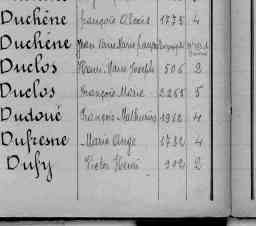 Duchêne François Alexis 1775 4
Duchêne Jean Marie
Duclos Henri Marie Joseph 506 2
Duclos François Marie 2265 5
Dudoué François Mathurin 1912 4
Dufresne Marie Ange 1732 4
Dufy Victor Henri 902 2